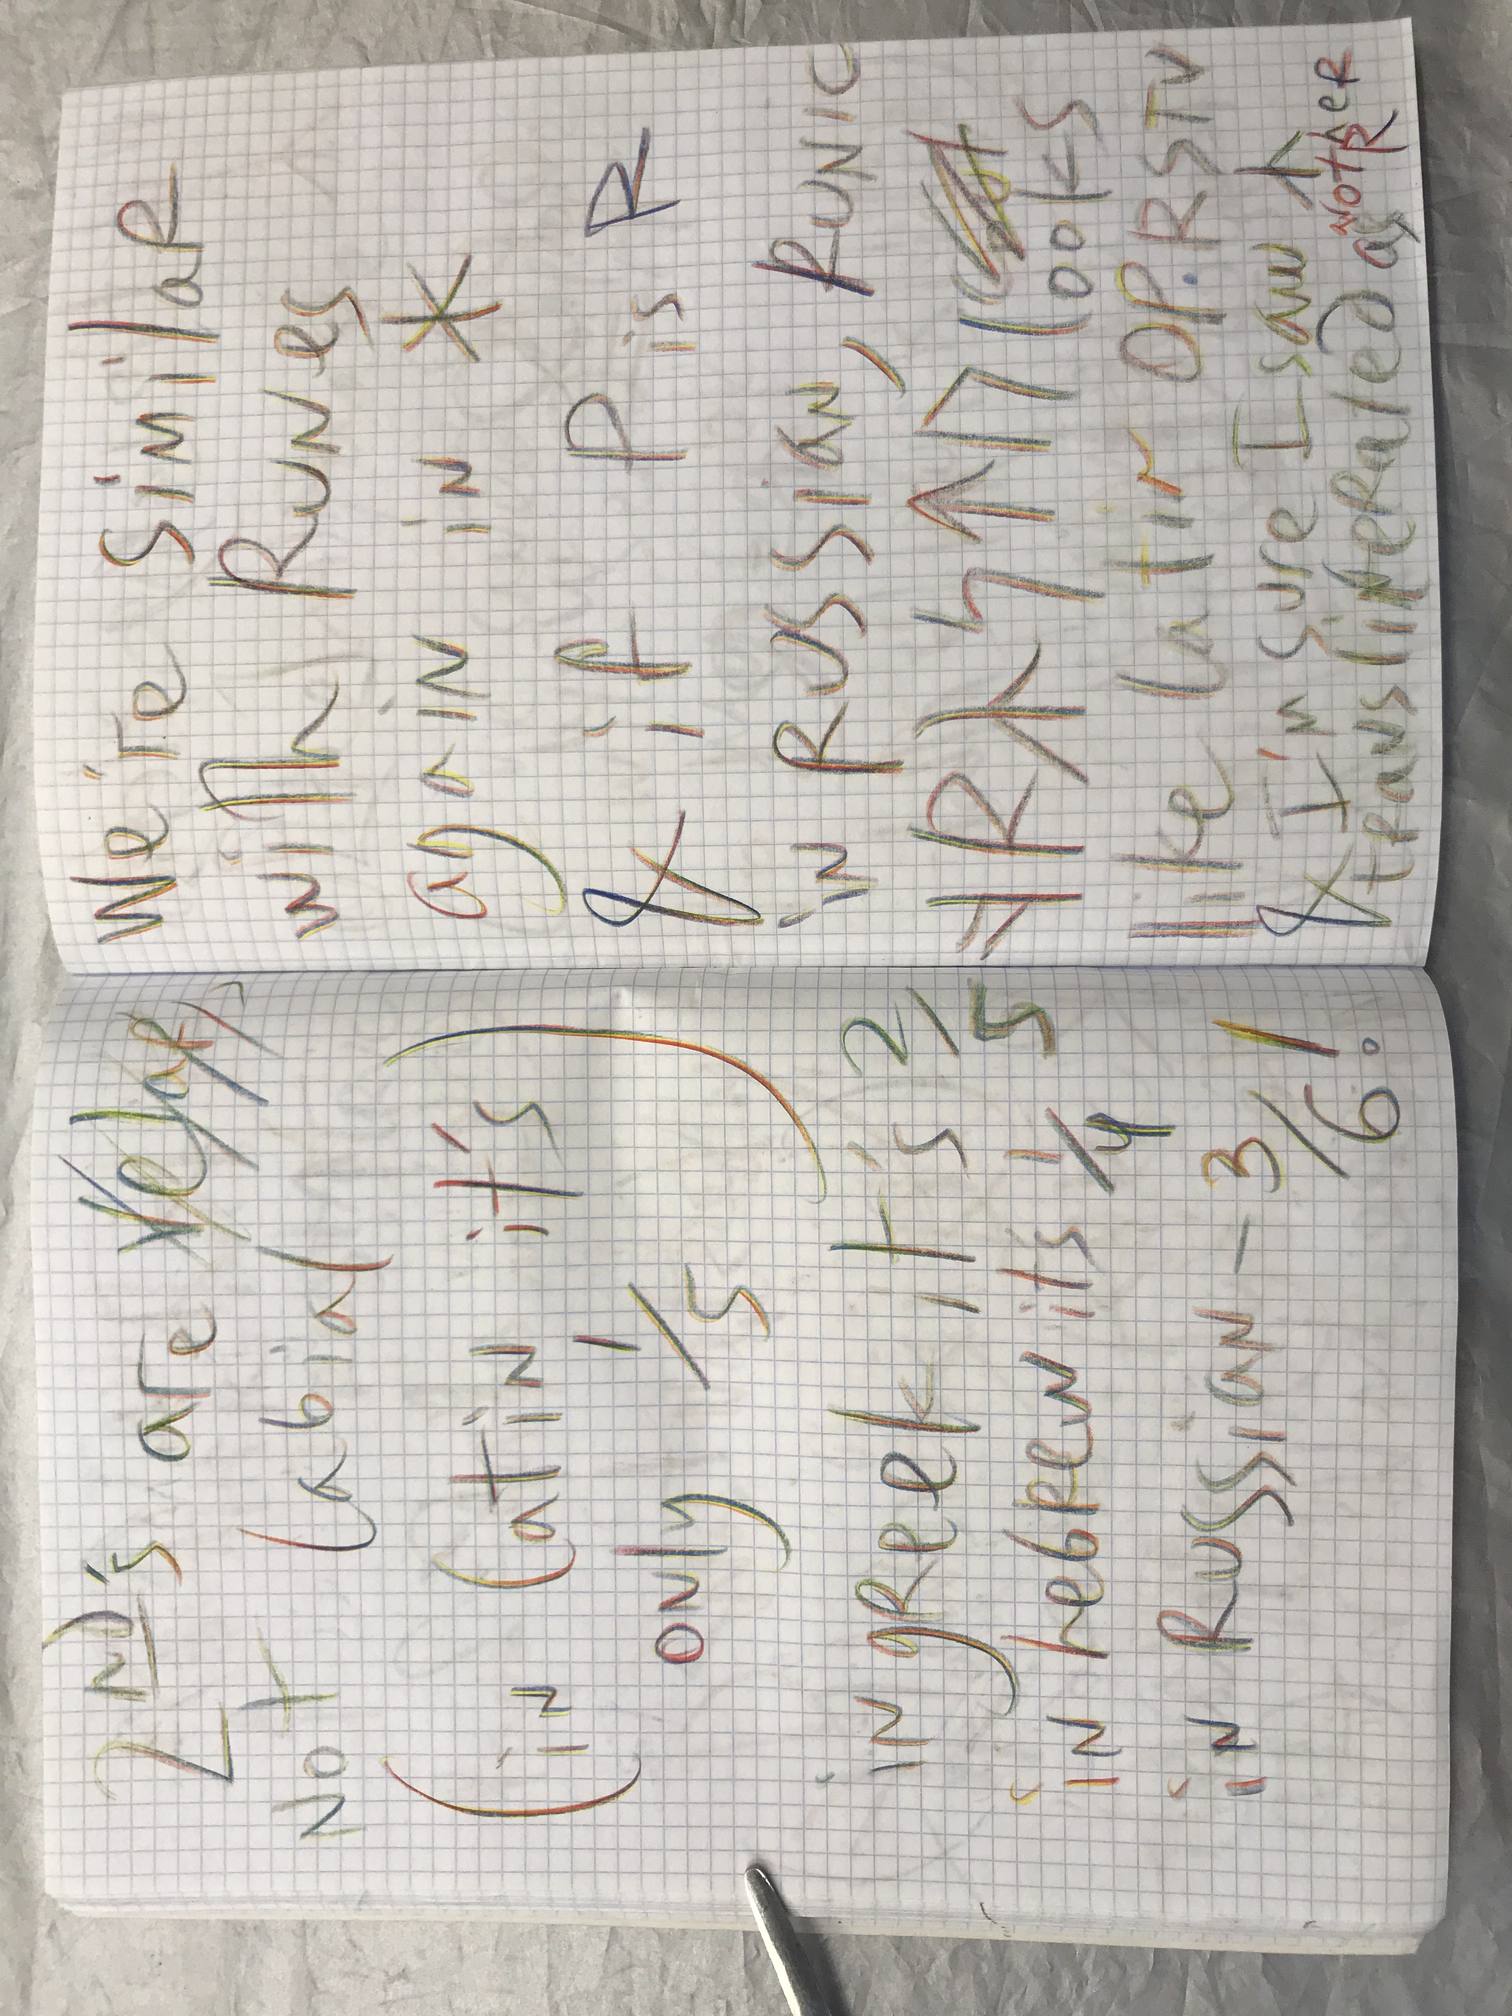 2ND's are Velar,
NOT labial
(in latin it's
only 1/5)
in greek it's 2/5
in hebrew it's 1/4
in Russian - 3/6!
We're similar
with Runes
again in *
& if P is R
in Russian, RUNIC
ᛋ ᛏ ᚢ looks
like latin OP.RSTV
& I'm sure I saw ᛉ
transliterated as
another R